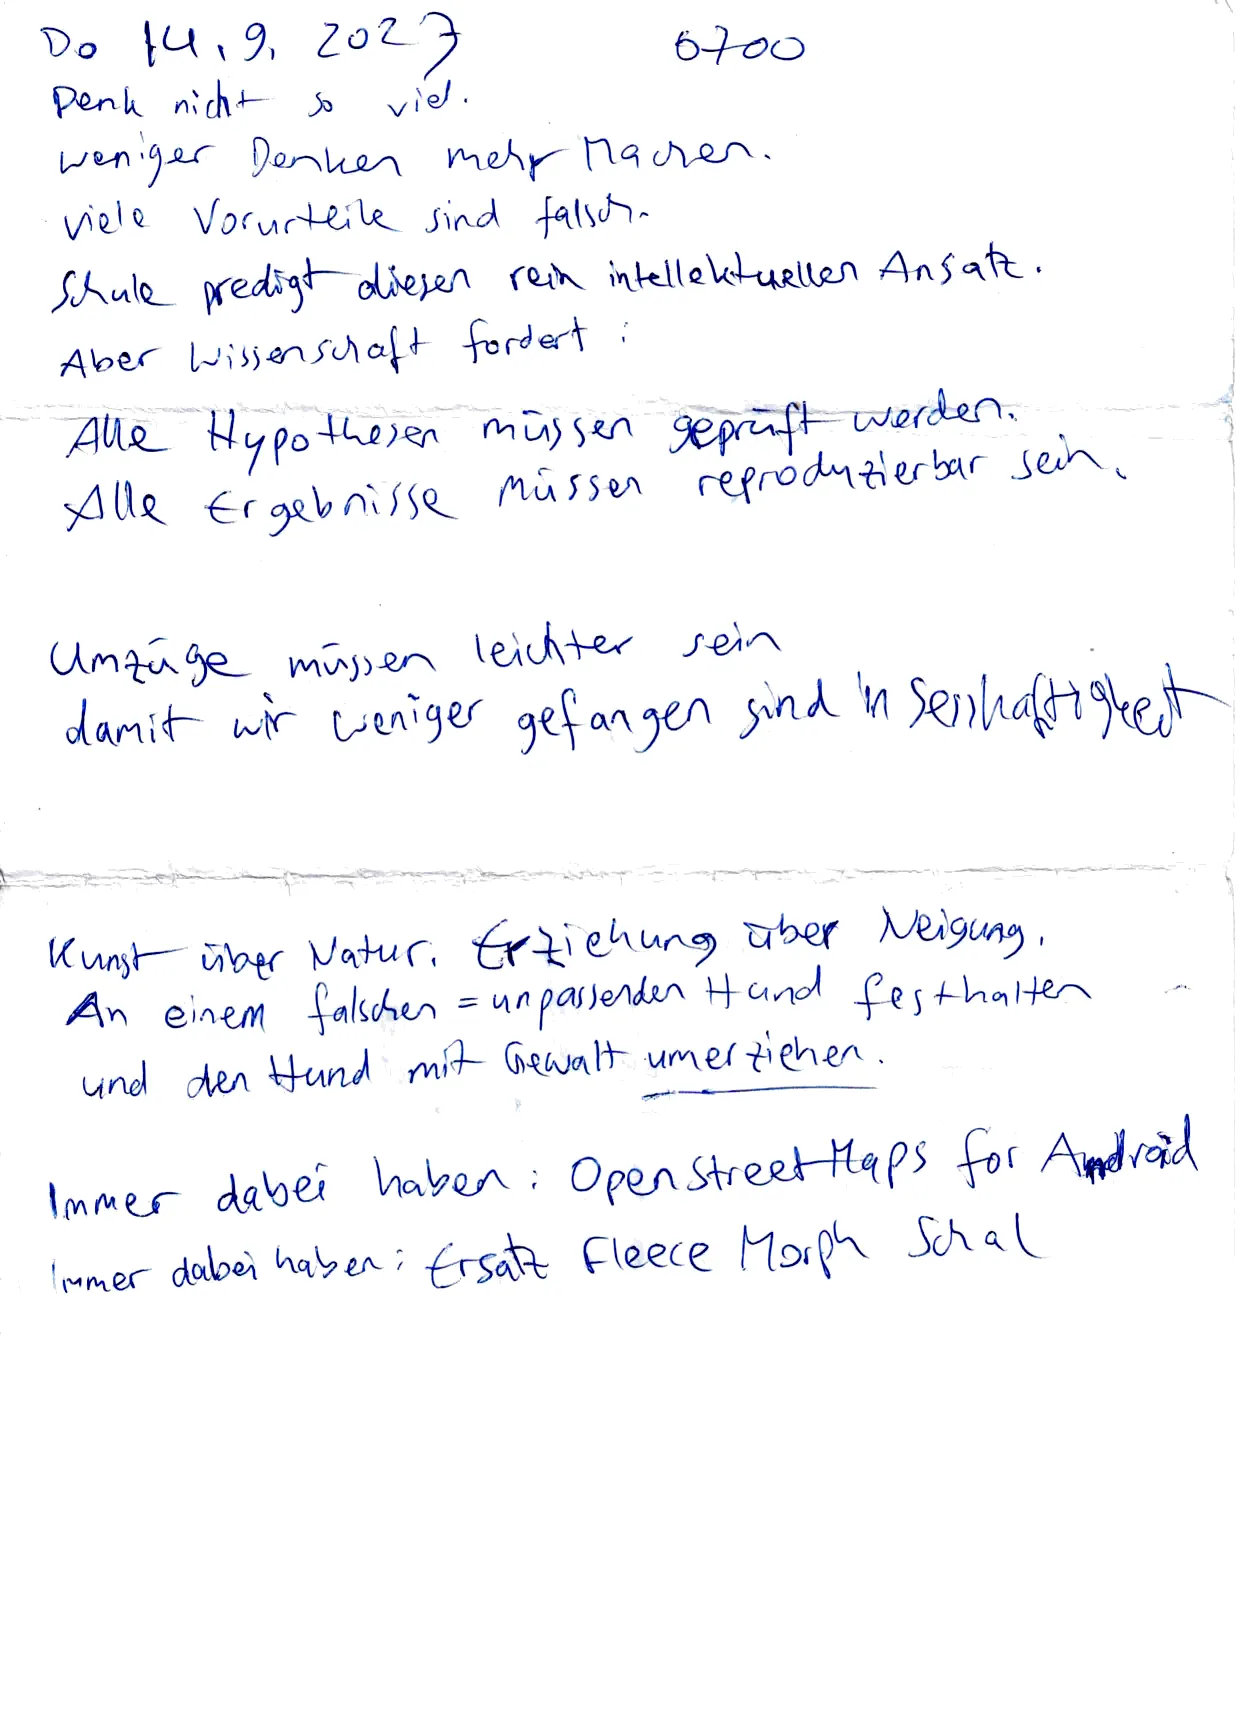 Do 14.9.2023 6700
Denk nicht so viel.
weniger Denken mehr Machen.
viele Vorurteile sind falsch.
Schule predigt diesen rein intellektuellen Ansatz.
Aber Wissenschaft fordert:
Alle Hypothesen müssen geprüft werden.
Alle Ergebnisse müssen reproduzierbar sein.
Umzüge müssen leichter sein
damit wir weniger gefangen sind in Sesshaftigkeit
Kunst über Natur. Erziehung über Neigung.
An einem falschen = unpassenden Hund festhalten
und den Hund mit Gewalt umerziehen.
Immer dabei haben: OpenStreetMaps for Android
Immer dabei haben: Ersatz Fleece Morph Schal